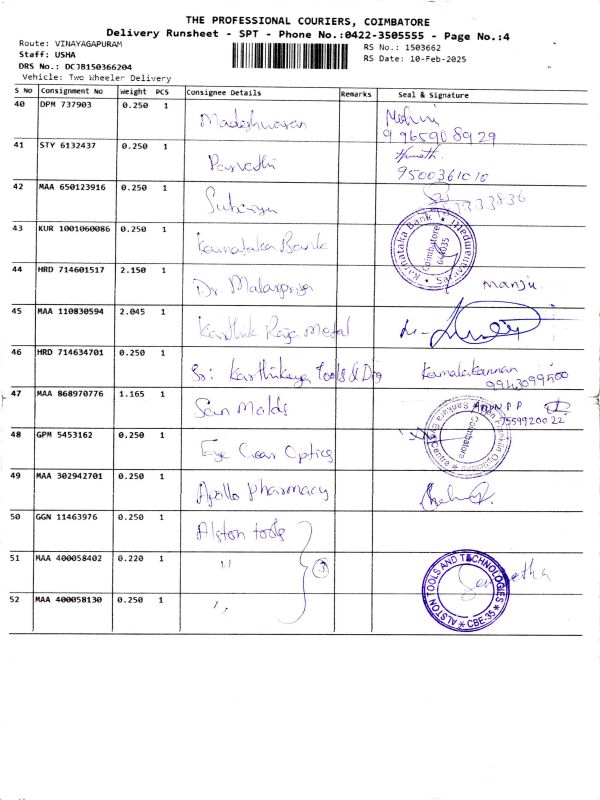 THE PROFESSIONAL COURIERS, COIMBATORE
Delivery Runsheet - SPT - Phone No.:0422-3505555 - Page No.:4
Route: VINAYAGAPURAM
Staff: USHA
DRS No.: DCJB150366204
Vehicle: Two Wheeler Delivery
RS No.: 1503662
RS Date: 10-Feb-2025
S No Consignment No Weight PCS Consignee Details Remarks Seal & Signature
40 DPM 737903 0.250 1 Madeshwaran
9965908929
41 STY 6132437 0.250 1 Parvathi
9500361010
42 MAA 650123916 0.250 1
43 KUR 1001060086 0.250 1 Karnataka Bank
Karnataka Bank
Coimbatore
641035
44 HRD 714601517 2.150 1 Dr. Malarpriya Manju
45 MAA 110830594 2.045 1 Karthik Raja Metal
46 HRD 714634701 0.250 1 Sri Karthikeya Tools & Die Kamalakannan
9943099500
47 MAA 868970776 1.165 1 Sun Molds ARUN P P
48 GPM 5453162 0.250 1 Eye Clear Optics
Coimbatore
49 MAA 302942701 0.250 1 Apollo Pharmacy
50 GGN 11463976 0.250 1 Alston tools
51 MAA 400058402 0.220 1 ,, 3
52 MAA 400058130 0.250 1 ,,
ALSTON TOOLS AND TECHNOLOGIES
CBE-35